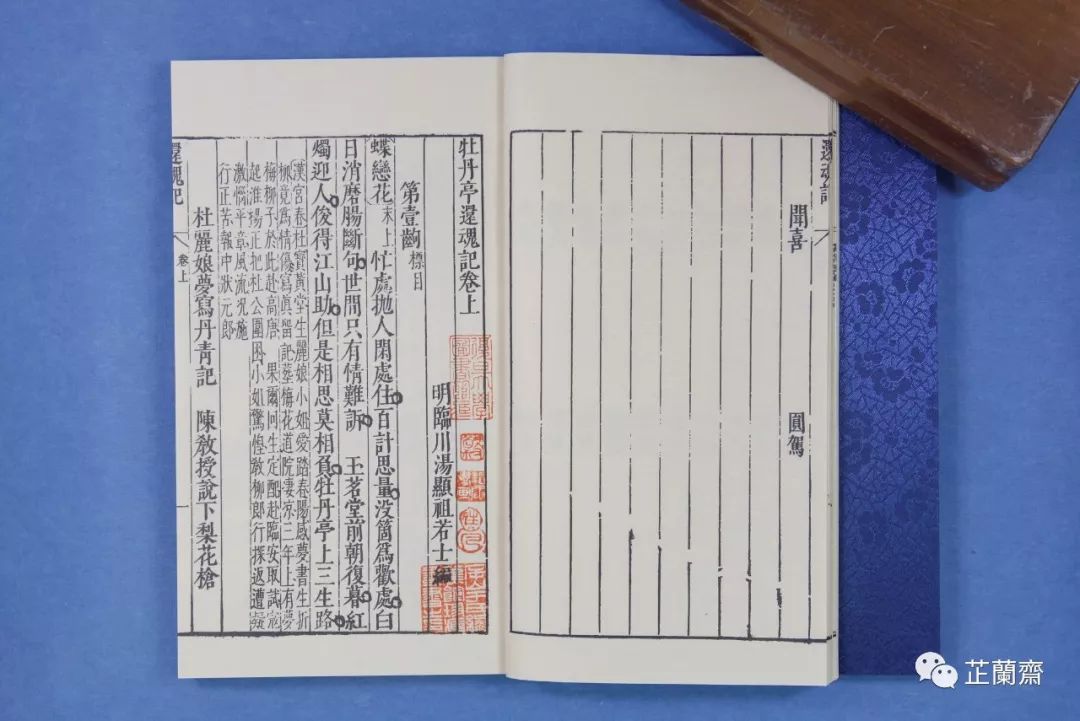 還魂記
聞喜 圓駕
牡丹亭還魂記卷上
明臨川湯顯祖若士編
第壹齣 標目
蝶戀花 末上 忙處拋人閑處住百計思量没箇爲歡處白
日消磨腸斷句世間只有情難訴 玉茗堂前朝復暮紅
燭迎人俊得江山助但是相思莫相負牡丹亭上三生路
漢宮春杜寶黃堂生麗娘小姐愛踏春陽感夢書生折
柳竟爲情傷寫眞畱記葬梅花道院凄凉三年上有夢
梅柳子於此赴高唐 果爾回生定配赴臨安取試寇
起淮揚正把杜公圍困小姐驚惶教柳郎行探返遭疑
激惱平章風流況施
行正苦報中狀元郎
杜麗娘夢寫丹青記 陳教授說下梨花槍
還魂記 卷上 一
芷蘭齋